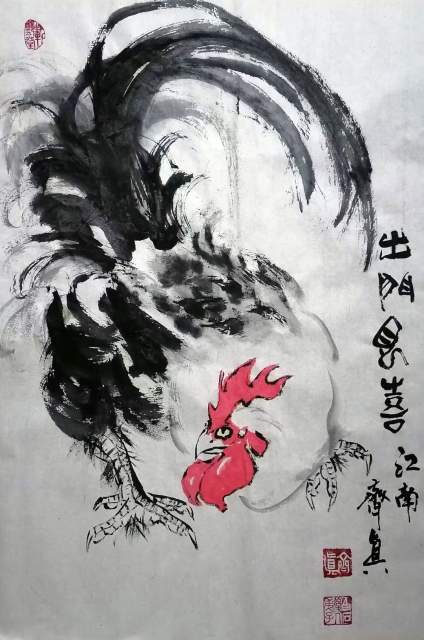 出門見喜
江南
齊眞